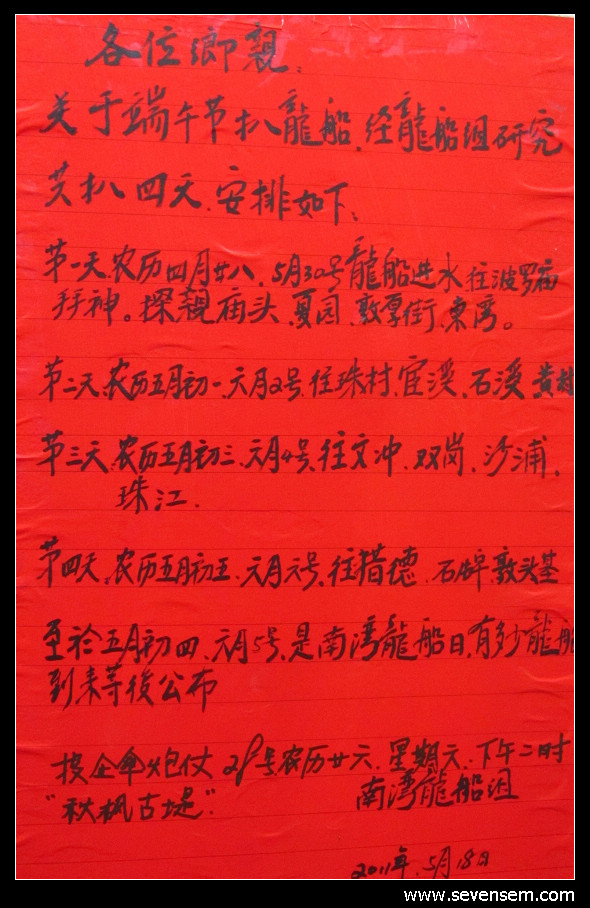 各位鄉親：
关于端午节扒龍船，经龍船组研究
共扒四天，安排如下：
第一天，农历四月廿八，5月30号龍船进水往波罗庙
拜神。探親庙头，夏园，敦厚街，東湾。
第二天，农历五月初一，六月2号，往珠村，宦溪，石溪，黄村
第三天，农历五月初三，六月4号，往文冲，双岗，沙浦，
珠江．
第四天，农历五月初五，六月六号，往猎德，石牌，敦头基
至於五月初四，六月5号，是南湾龍船日，有多少龍船
到来等後公布
投企傘炮仗28号农历廿六，星期六，下午二时
"秋枫古堤"．南湾龍船组
2011年．5月18日
www.sevensem.com